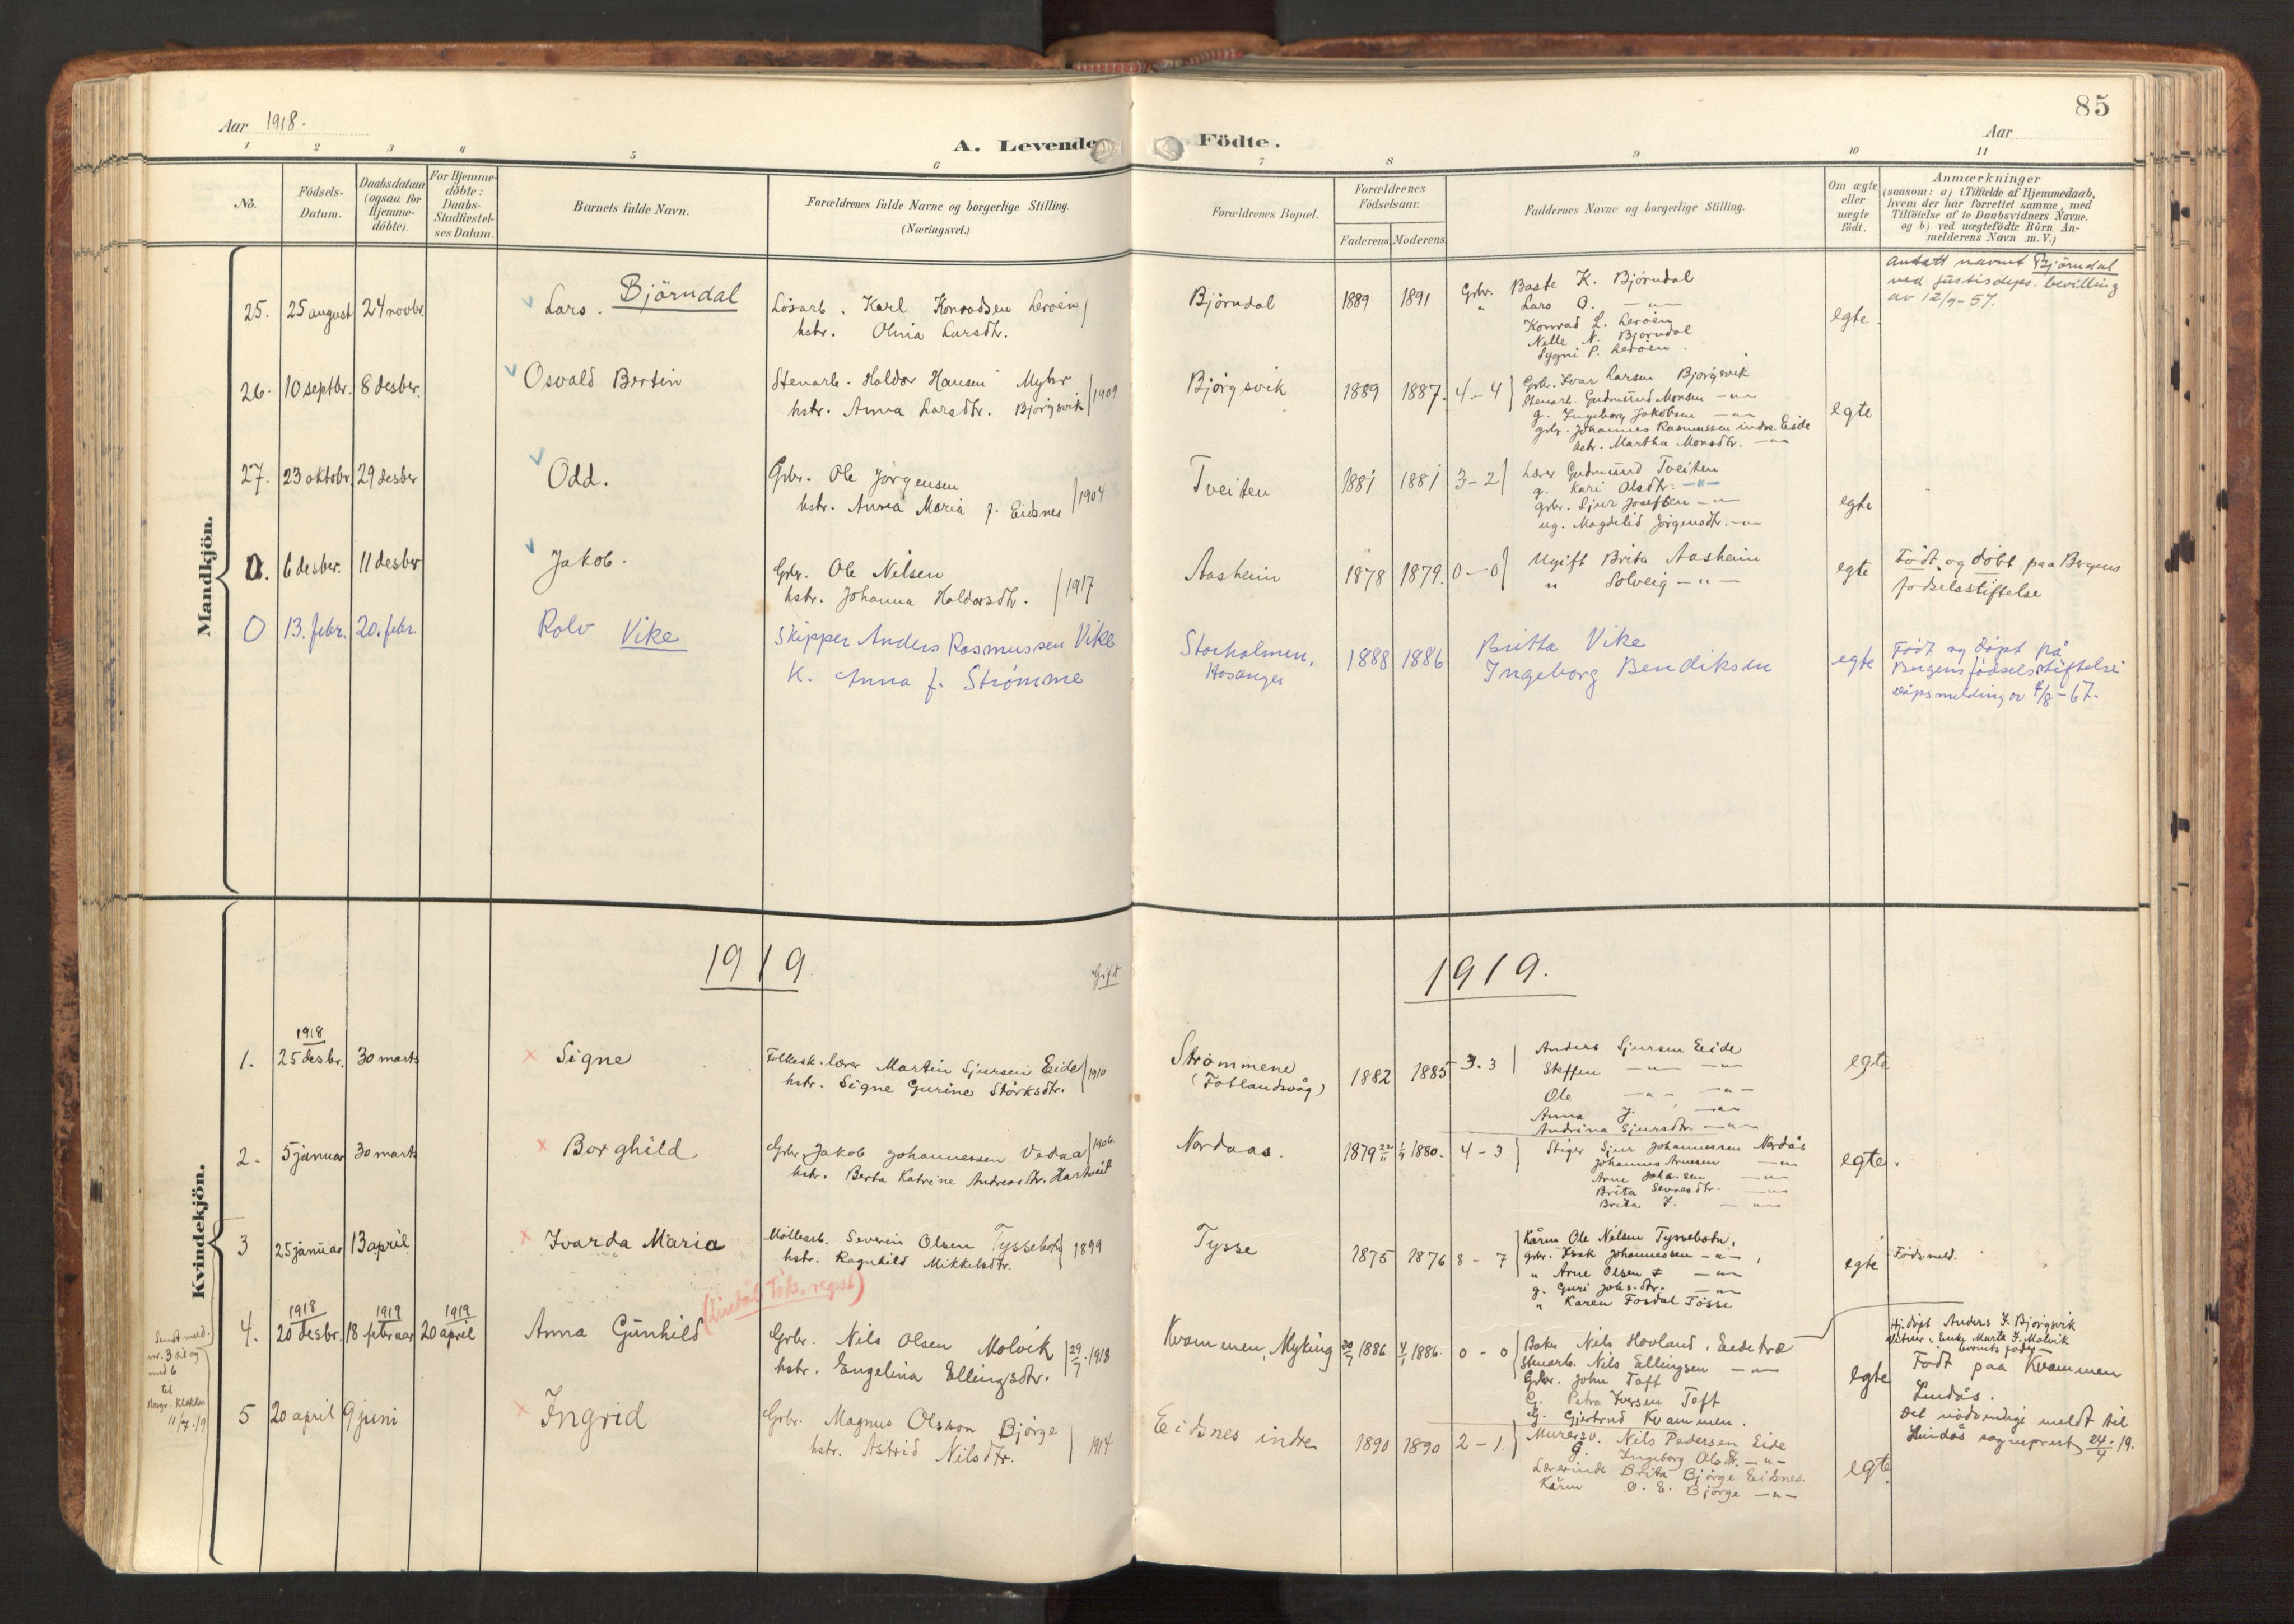 85
Aar 1918.
Aar
A. Levende Födte.
1 2 3 4 5 6 7 8 9 10 11
No.
Födsels-
Datum.
Daabsdatum
(ogsaa for
Hjemme-
döbte).
For Hjemme-
döbte:
Daabs-
Stadfæstel-
ses Datum.
Barnets fulde Navn.
Forældrenes fulde Navne og borgerlige Stilling.
(Næringsvei.)
Forældrenes Bopæl.
Forældrenes
Födselsaar.
Faderens. Moderens.
Faddernes Navne og borgerlige Stilling.
Om ægte
eller
uægte
födt.
Anmærkninger
(saasom: a) i Tilfælde af Hjemmedaab,
hvem der har forrettet samme, med
Tilföielse af to Daabsvidners Navne,
og b) ved uægtefödte Börn An-
melderens Navn m. V.)
Mandkjön.
25. 25 august 24 novbr. Lars. Björndal
Løsarb. Karl Konradsen Lerøen
hstr. Olina Larsdtr.
Björndal 1889 1891
Grbr. Baste K. Björndal
" Lars O. —"—
Konrad L. Lerøen
Nille N. Björndal
Sygni P. Lerøen.
egte.
Antatt navnet Björndal
ved justisdeps. bevilling
av 12/9-57.
26. 10 septbr. 8 desber. Osvald Bertin
Stenarb. Haldor Hansen Myhr
hstr. Anna Larsdtr. Bjørgsvik 1909
Bjørgsvik 1889 1887. 4-4
Grb. Ivar Larsen Bjørgsvik
Stenarb. Gudmund Monsen —"—
g. Ingeborg Jakobsen —"—
grbr. Johannes Rasmussen indre Eide
hstr. Martha Monsdtr. —"—
egte
27. 23 oktobr. 29 desber Odd.
Grbr. Ole Jørgensen
hstr. Anna Maria f. Eidsnes 1904
Tveiten 1881 1881 3-2
Lærer Gudmund Tveiten
g. Kari Olsdtr. —"—
grbr. Sjur Josefsen —"—
ug. Magdelid Jørgensdtr. —"—
egte
0. 6 desber. 11 desber Jakob.
Grbr. Ole Nilsen
hstr. Johanna Haldorsdtr. 1917
Aasheim 1878 1879. 0-0
Ugift Brita Aasheim
" Solveig —"—
egte
Født og døbt paa Bergens
fødselsstiftelse
0 13. febr. 20. febr. Rolv Vike
Skipper Anders Rasmussen Vike
K. Anna f. Strømme
Storholmen,
Hosanger
1888 1886
Britta Vike
Ingeborg Bendiksen
egte
Født og døpt på
Bergens fødselsstiftelse
Dåpsmelding av 4/8-67.
Kvindekjön.
1919 1919.
Gift
1. 1918
25 desbr. 30 marts Signe
Folkesk.lærer Martin Sjursen Eide
hstr. Signe Gurine Størksdtr. 1910
Strømmene
(Fotlandsvåg)
1882 1885 3.3
Anders Sjursen Eide
Steffen —"— —"—
Ole —"— —"—
Anna J. —"—
Andrina Sjursdtr. —"—
egte
2. 5 januar 30 marts Borghild
Grbr. Jakob Johannessen Vedaa 1906.
hstr. Berta Katrine Andreasdtr. Hartveit
Nordaas. 1879 22/11 1880. 4-3
Stiger Sjur Johannessen Nordås
Johannes Arnesen —"—
Arne Johs.sen —"—
Brita Seversdtr. —"—
Brita J. —"—
egte.
3 25 januar 13 april Ivarda Maria
Møllearb. Severin Olsen Tyssebotn
hstr. Ragnhild Mikkelsdtr. 1899
Tysse 1875 1876 8-7
Kårm. Ole Nilsen Tyssebotn.
grbr. Isak Johannessen —"—
" Arne Olsen —"—
g. Guri Johs.dtr. —"—
" Karen Fosdal Tösse
egte Føds.meld.
(Lindås Tils. regst)
4. 1918
20 desbr. 1919
18 februar 1919
20 april Anna Gunhild
Grbr. Nils Olsen Molvik
hstr. Engelina Ellingsdtr. 29/7 1918
Kvammen, Myking 30/7 1886 4/1 1886. 0-0
Baker Nils Hovland, Eidetræ
Stenarb. Nils Ellingsen —"—
Grbr. John Toft
G. Petra Iversen Toft
G. Gjertrud Kvammen.
egte
Hj.døpt Anders J. Bjørgsvik
Vitner: Enke Marta J. Molvik
Født paa Kvammen
Lindås.
Det nødvendige meldt til
Lindås sogneprest 24/4.19.
5 20 april 9 juni Ingrid
Grbr. Magnus Olsson Bjørge
hstr. Astrid Nilsdtr. 1914
Eidsnes indre 1890 1890 2-1.
Murersv. Nils Pedersen Eide
G. Ingeborg Olsdtr. —"—
Lærerinde Brita Bjørge Eidsnes.
Kårm O. E. Bjørge —"—
egte.
Sendt meld.
nr. 3 til og
med 6
til
Klokker
11/7.19